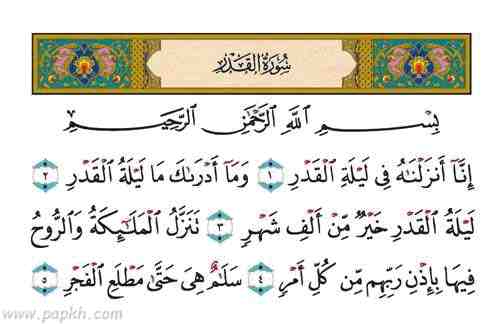 سُورَةُ القَدۡرِ
بِسۡمِ ٱللَّهِ ٱلرَّحۡمَٰنِ ٱلرَّحِيمِ
إِنَّآ أَنزَلۡنَٰهُ فِي لَيۡلَةِ ٱلۡقَدۡرِ ١ وَمَآ أَدۡرَىٰكَ مَا لَيۡلَةُ ٱلۡقَدۡرِ ٢
لَيۡلَةُ ٱلۡقَدۡرِ خَيۡرٞ مِّنۡ أَلۡفِ شَهۡرٖ ٣ تَنَزَّلُ ٱلۡمَلَٰٓئِكَةُ وَٱلرُّوحُ
فِيهَا بِإِذۡنِ رَبِّهِم مِّن كُلِّ أَمۡرٖ ٤ سَلَٰمٌ هِيَ حَتَّىٰ مَطۡلَعِ ٱلۡفَجۡرِ ٥
www.papkh.com